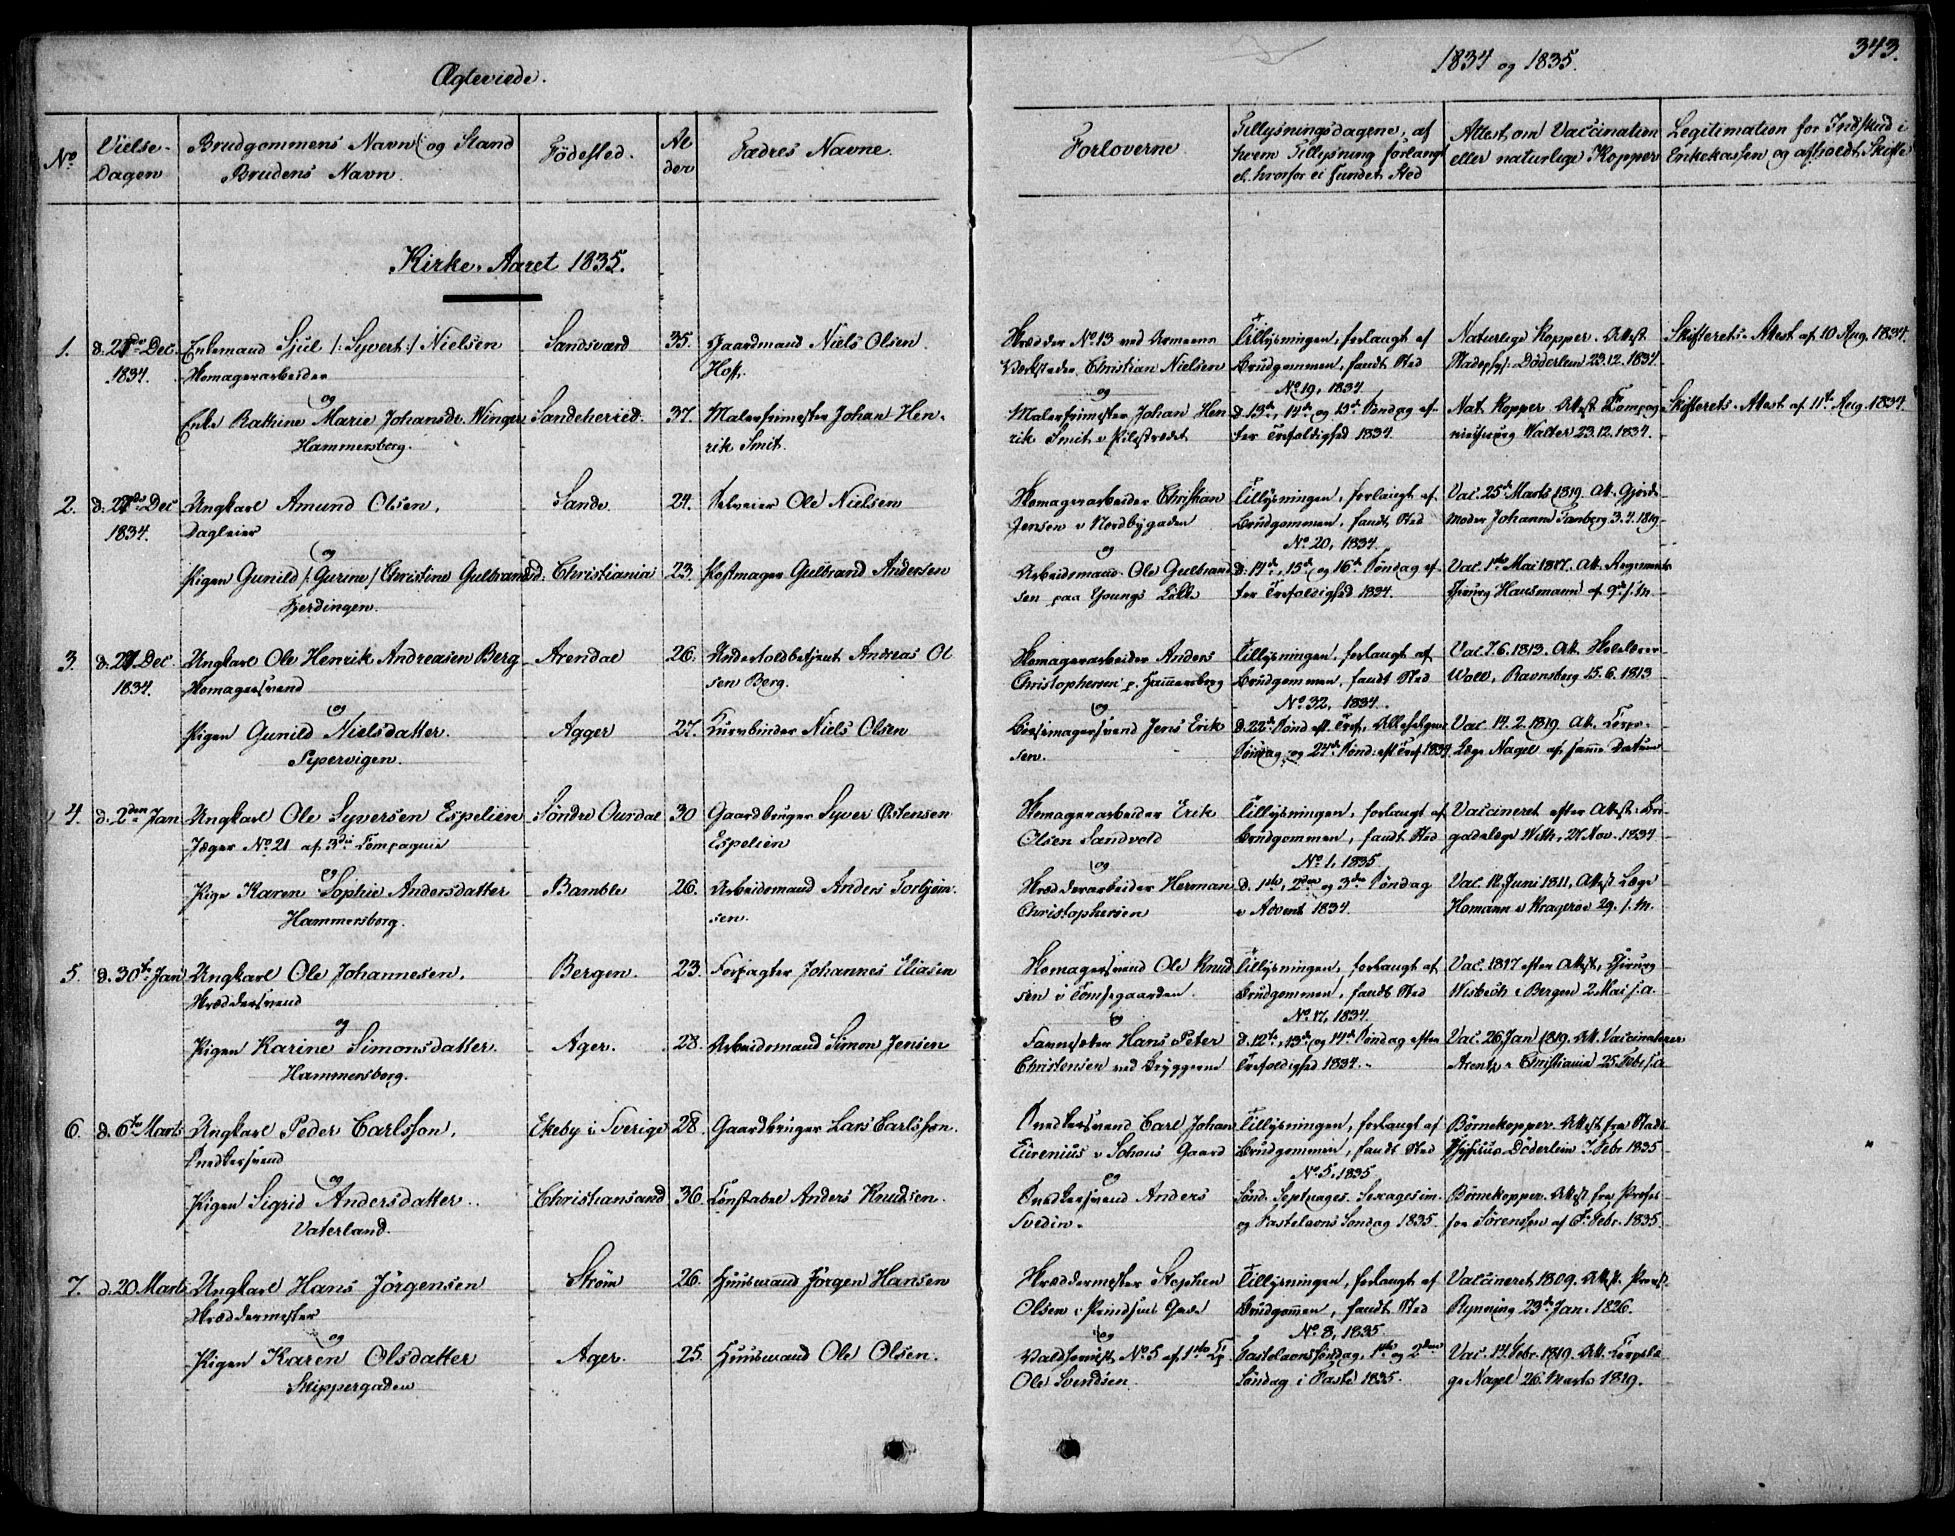 Ægteviede.
1834 og 1835.
343.
No
Vielse-
Dagen
Brudgommens Navn og Stand
Brudens Navn.
Födested.
Al
der
Fædres Navne.
Forloverne
Tillysningsdagene, af
hvem Tillysning forlangt
el. hvorfor ei fundet Sted
Attest om Vaccination
eller naturlige Kopper
Legitimation for Indskud i
Enkekassen og afholdt Skifte
Kirke-Aaret 1835.
1.
Dec.
1834.
Enkemand Sjul /:Syvert:/ Nielsen
Skomagerarbeider
Sandsværd
35.
Gaardmand Niels Olsen
Skrædder No 13 ved
Christian Nielsen
Tillysningen, forlangt af
Brudgommen, fandt Sted
No 19, 1834
Naturlige Kopper. Attest
Stadsphys: Döderlein 23.12.1834
Skifterets-Attest af 10 Aug. 1834.
og
Enke Rathine Marie Johansdr Winger
Hammersborg.
Sandeherred.
37.
Malersvimester Johan Hen-
rik Smit.
og
Johan Hen
rik Smit, i Pilestrædet
d. 13de, 14de og 15de Söndag ef-
ter Trefoldighed 1834.
Nat. Kopper Attest Compag-
niechirurg Walter 23.12.1834.
Skifterets-Attest af 11te Aug. 1834.
2.
Dec
1834.
Ungkarl Amund Olsen,
Dagleier
Sande
24.
Selveier Ole Nielsen
Skomagerarbeider Christian
Jensen i Nordbygaden
Tillysningen, forlangt af
Brudgommen, fandt Sted
No 20, 1834
Vac. 25de Marts 1819. Att. Gjorde-
moder Johanne Tanberg 3.4.1819
og
Pigen Gunild /:Gurine/ Christine Gulbrandsd.
Fjerdingen.
Christiania
23.
Postmager Gulbrand Andersen
og
Arbeidsmand Ole Gulbrand
sen paa Youngs Lökke
d. 14de, 15de og 16de Söndag ef-
ter Trefoldighed 1834.
Vac. 1ste Mai 1817. Att. Regiments
Chirurg Hausmann af 9de s.m
3.
Dec
1834.
Ungkarl Ole Henrik Andreasen Berg
Skomagersvend
Arendal
26.
Undertoldbetjent Andreas Ol
sen Berg.
Skomagerarbeider Anders
Christophersen p. Hammersborg
Tillysningen, forlangt af
Brudgommen, fandt Sted
No 32, 1834
Vac. 7.6.1813. Att. Skolelærer
Woll, Ravnsborg 15.6.1813
og
Pigen Gunild Nielsdatter.
Pypervigen.
Agger
27.
Kurvbinder Niels Olsen
og
Jens Erik
sen.
d. 22de Sönd. eft. Tref., Allehelgens
Söndag og 24de Sönd: eft Tref. 1834
Vac. 14.2.1819. Att. Corps-
Læge Nagel af samme Datum
4.
d. 2den Jan
Ungkarl Ole Syversen Espelien
Jæger No 21 af 3die Compagnie
Söndre Ourdal
30
Gaardbruger Syver Östensen
Espelien
Skomagerarbeider Erik
Olsen Sandvold
Tillysningen, forlangt af
Brudgommen, fandt Sted
No 1, 1835
Vaccineret efter Attest: Bri-
gadelæge Witth, 21 Nov. 1834
og
Pige Karen Sophie Andersdatter
Hammersborg.
Bamble
26.
Arbeidsmand Anders Torbjörn-
sen.
og
Skrædderarbeider Herman
Christophersen
d. 1ste, 2den og 3die Söndag
i Advent 1834.
Vac. 12. Juni 1811, Attest Læge
Homann i Kragerøe 29. s.m.
5.
d. 30te Jan
Ungkarl Ole Johannesen,
Skræddersvend
Bergen.
23.
Forpagter Johannes Eliasen
Skomagersvend Ole Knud
sen i Tomsegaarden.
Tillysningen, forlangt af
Brudgommen, fandt Sted
No 17, 1834.
Vac. 1817 efter Attest, Chirurg
Wisbech i Bergen 2 Mai s.a.
og
Pigen Karine Simonsdatter.
Hammersborg.
Ager.
28.
Arbeidsmand Simon Jensen
og
Hans Peter
Christensen ved Bryggerne
d. 12te, 13de og 14de Söndag efter
Trefoldighed 1834.
Vac. 26 Jan 1819. Att. Vaccinatører
Arentz i Christiania 25 Febr. s.a
6.
d. 6te Marts
Ungkarl Peder Carlsson,
Snedkersvend
Ekeby i Sverige
28.
Gaardbruger Lars Carlsson.
Snedkersvend Carl Johan
Eurenius i Schous Gaard
Tillysningen, forlangt af
Brudgommen, fandt Sted
No 5, 1835
Börnekopper. Attest fra Stads
Physicus Döderlein 7 Febr. 1835
og
Pigen Sigrid Andersdatter.
Vaterland.
Christiansand
36.
Constabel Anders Knudsen.
og
Snedkersvend Anders
Svedin.
Sönd. Septuages. Sexagesim.
og Fastelavns Söndag 1835.
Börnekopper. Attest fra Profes-
sor Sörenssen af 6te Febr. 1835.
7.
d. 20 Marts
Ungkarl Hans Jörgensen
Skræddermester
Ström
26.
Huusmand Jörgen Hansen
Skræddermester Stephen
Olsen i Gade
Tillysningen, forlangt af
Brudgommen, fandt Sted
No 8, 1835
Vaccineret 1809. Att. Provst
Rynning 23de Jan. 1826.
og
Pigen Karen Olsdatter
Skippergaden
Ager.
25.
Huusmand Ole Olsen.
og
No 5 af 1ste
Ole Svendsen
Fastelavnssöndag, 1ste og 2den
Söndag i Faste 1835.
Vac. 14 Febr. 1819. Att. Corpslæ
ge Nagel 26. Marts 1819.